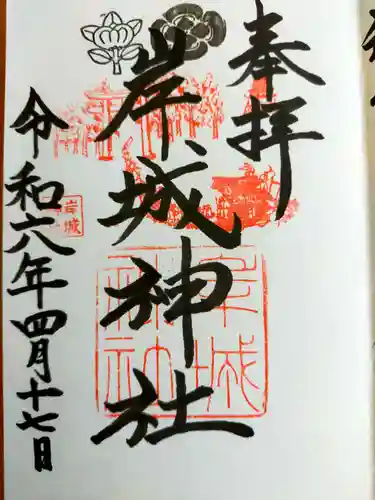 奉拝
岸城神社
岸城神社
岸城
令和六年四月十七日